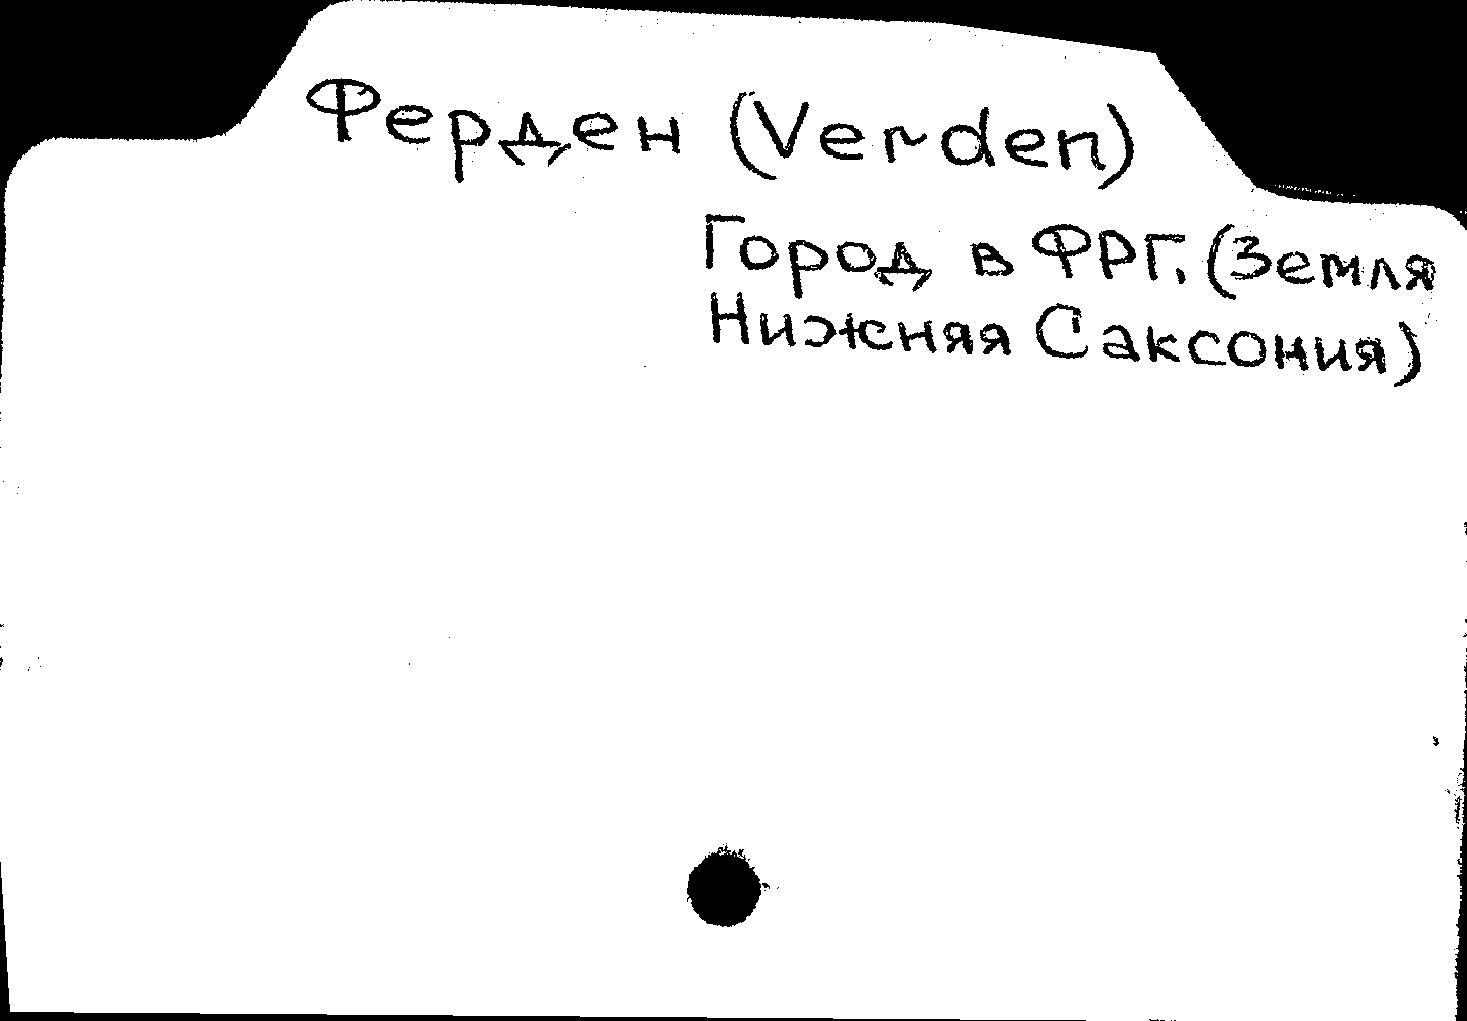 Ферден (Verden)
Город в ФРГ. (Земля
Нижняя Саксония)